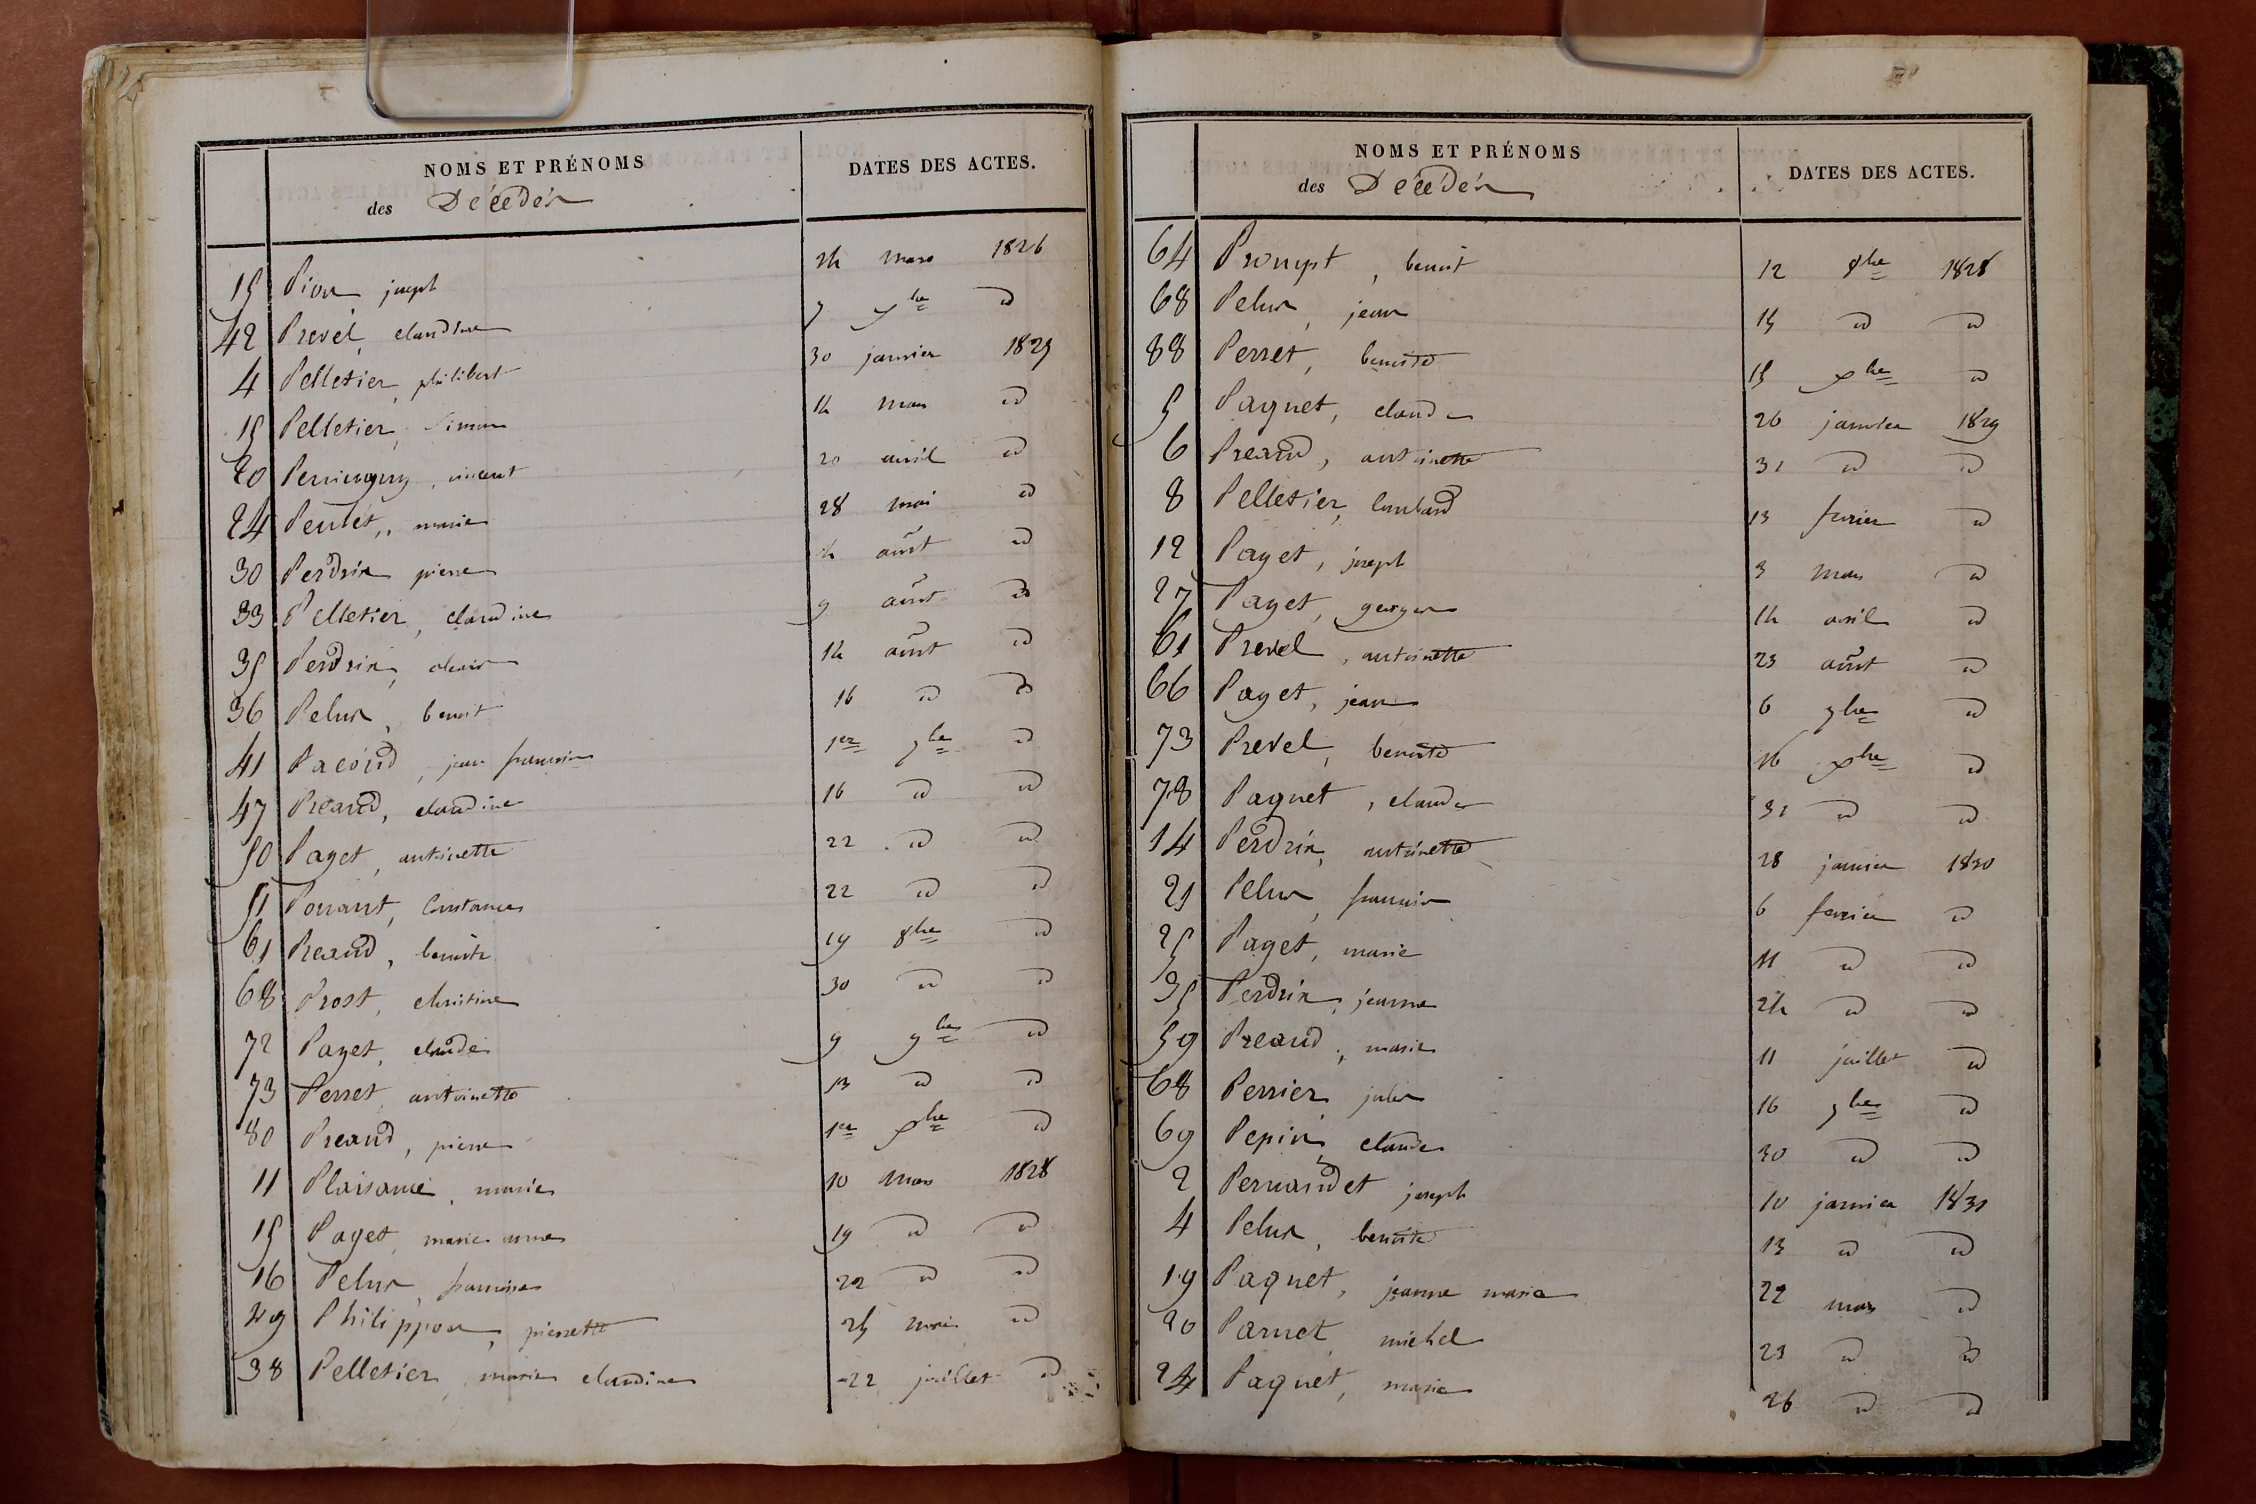 NOMS ET PRÉNOMS DATES DES ACTES.
des Décédés
15 Pion joseph 24 mars 1826
42 Prevel, claudine 7 xbre id
4 Pelletier, philibert 30 janvier 1827
15 Pelletier, Simon 14 mars id
20 vincent 20 avril id
24 marie 28 mai id
30 Perdrix pierre 4 août id
33 Pelletier, claudine 9 août id
35 Perdrix, 14 août id
36 Pelus, benoit 16 id id
41 Pacoud, jean francois 1er 7bre id
47 Preaud, claudine 16 id id
50 Paget, antoinette 22 id id
51 Ponant, Constance 22 id id
61 Preaud, benoite 19 8bre id
68 Prost, christine 30 id id
72 Paget, claude 9 9bre id
73 Perret, antoinette 13 id id
80 Preaud, pierre 1er xbre id
11 Plaisance, marie 10 mars 1828
15 Paget, marie anne 19 id id
16 Pelus, francoise 22 id id
29 Philippon, pierrette 25 mai id
38 Pelletier, marie claudine 22 juillet id
NOMS ET PRÉNOMS DATES DES ACTES.
des Décédés
64 Prompt, benoit 12 8bre 1828
68 Pelus, jean 15 id id
88 Perret, benoite 15 xbre id
5 Paquet, claude 26 janvier 1829
6 Preaud, antoinette 31 id id
8 Pelletier, lombard 13 fevrier id
12 Paget, joseph 3 mars id
27 Paget, george 14 avril id
61 Prevel, antoinette 23 août id
66 Paget, jean 6 7bre id
73 Prevel, benoite 16 xbre id
78 Paquet, claude 31 id id
14 Perdrix, antoinette 28 janvier 1830
21 Pelus, francois 6 fevrier id
25 Paget, marie 11 id id
35 Perdrix, jeanne 24 id id
59 Preaud, marie 11 juillet id
68 Perrier, julie 16 7bre id
69 Pepin, claude 30 id id
2 Pernaudet joseph 10 janvier 1831
4 Pelus, benoite 13 id id
19 Paquet, jeanne marie 22 mars id
20 Parnet, michel 23 id id
24 Paquet, marie 26 id id